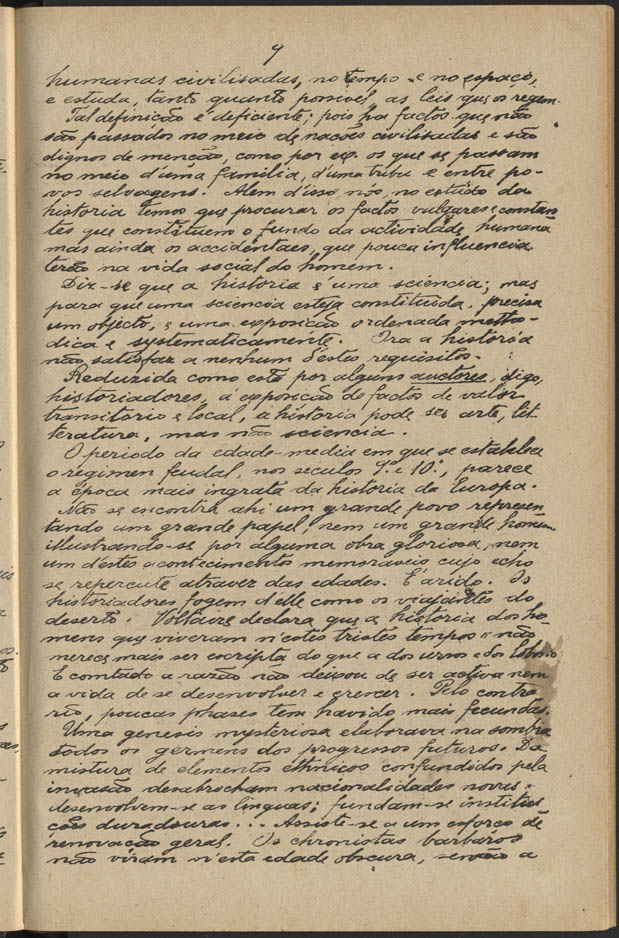 9
humanas civilisadas, no tempo e no espaço,
e estuda, tanto quanto possivel, as leis que os regem.
Tal definição é deficiente; pois ha factos que não
são passados no meio de nações civilisadas e são
dignos de menção, como por exp. os que se passam
no meio d'uma familia, d'uma tribu e entre po-
vos selvagens. Alem d'isso nós, no estudo da
historia temos que procurar os factos vulgares e constan
tes que constituem o fundo da actividade humana
mas ainda os accidentaes, que pouca influencia
terão na vida social do homem.
Diz-se que a historia é uma sciencia; mas
para que uma sciencia esteja constituida, precisa
um objecto, e uma exposição ordenada metho-
dica e systematicamente. Ora a historia
não satisfaz a nenhum d'estes requisitos.
Reduzida como está por alguns auctores, digo,
historiadores, á exposição de factos de valor
transitorio e local, a historia pode ser arte, lit
teratura, mas não sciencia.
O periodo da edade-media em que se estabelece
o regimen feudal, nos seculos 9º e 10º, parece
a época mais ingrata da historia da Europa.
Não se encontra ahi um grande povo represen
tando um grande papel, nem um grande homem
illustrando-se por alguma obra gloriosa, nem
um d'estes acontecimentos memoraveis cujo echo
se repercute atravez das edades. É arido. Os
historiadores fogem d'elle como os viajantes do
deserto. Voltaire declara que a historia dos ho
mens que viveram n'estes tristes tempos "não
merece mais ser escripta do que a dos ursos e dos lobos"
E comtudo a razão não deixou de ser activa nem
a vida de se desenvolver e crescer. Pelo contra
rio, poucas phases tem havido mais fecundas.
Uma genesis mysteriosa elaborava na sombra
todos os germens dos progressos futuros. Da
mistura de elementos ethnicos confundidos pela
invasão desabrocham nacionalidades novas:
desenvolvem-se as linguas; fundam-se institui
ções duradouras... Assiste-se a um esforço de
renovação geral. Os chronistas barbaros
não viram n'esta edade obscura, senão a